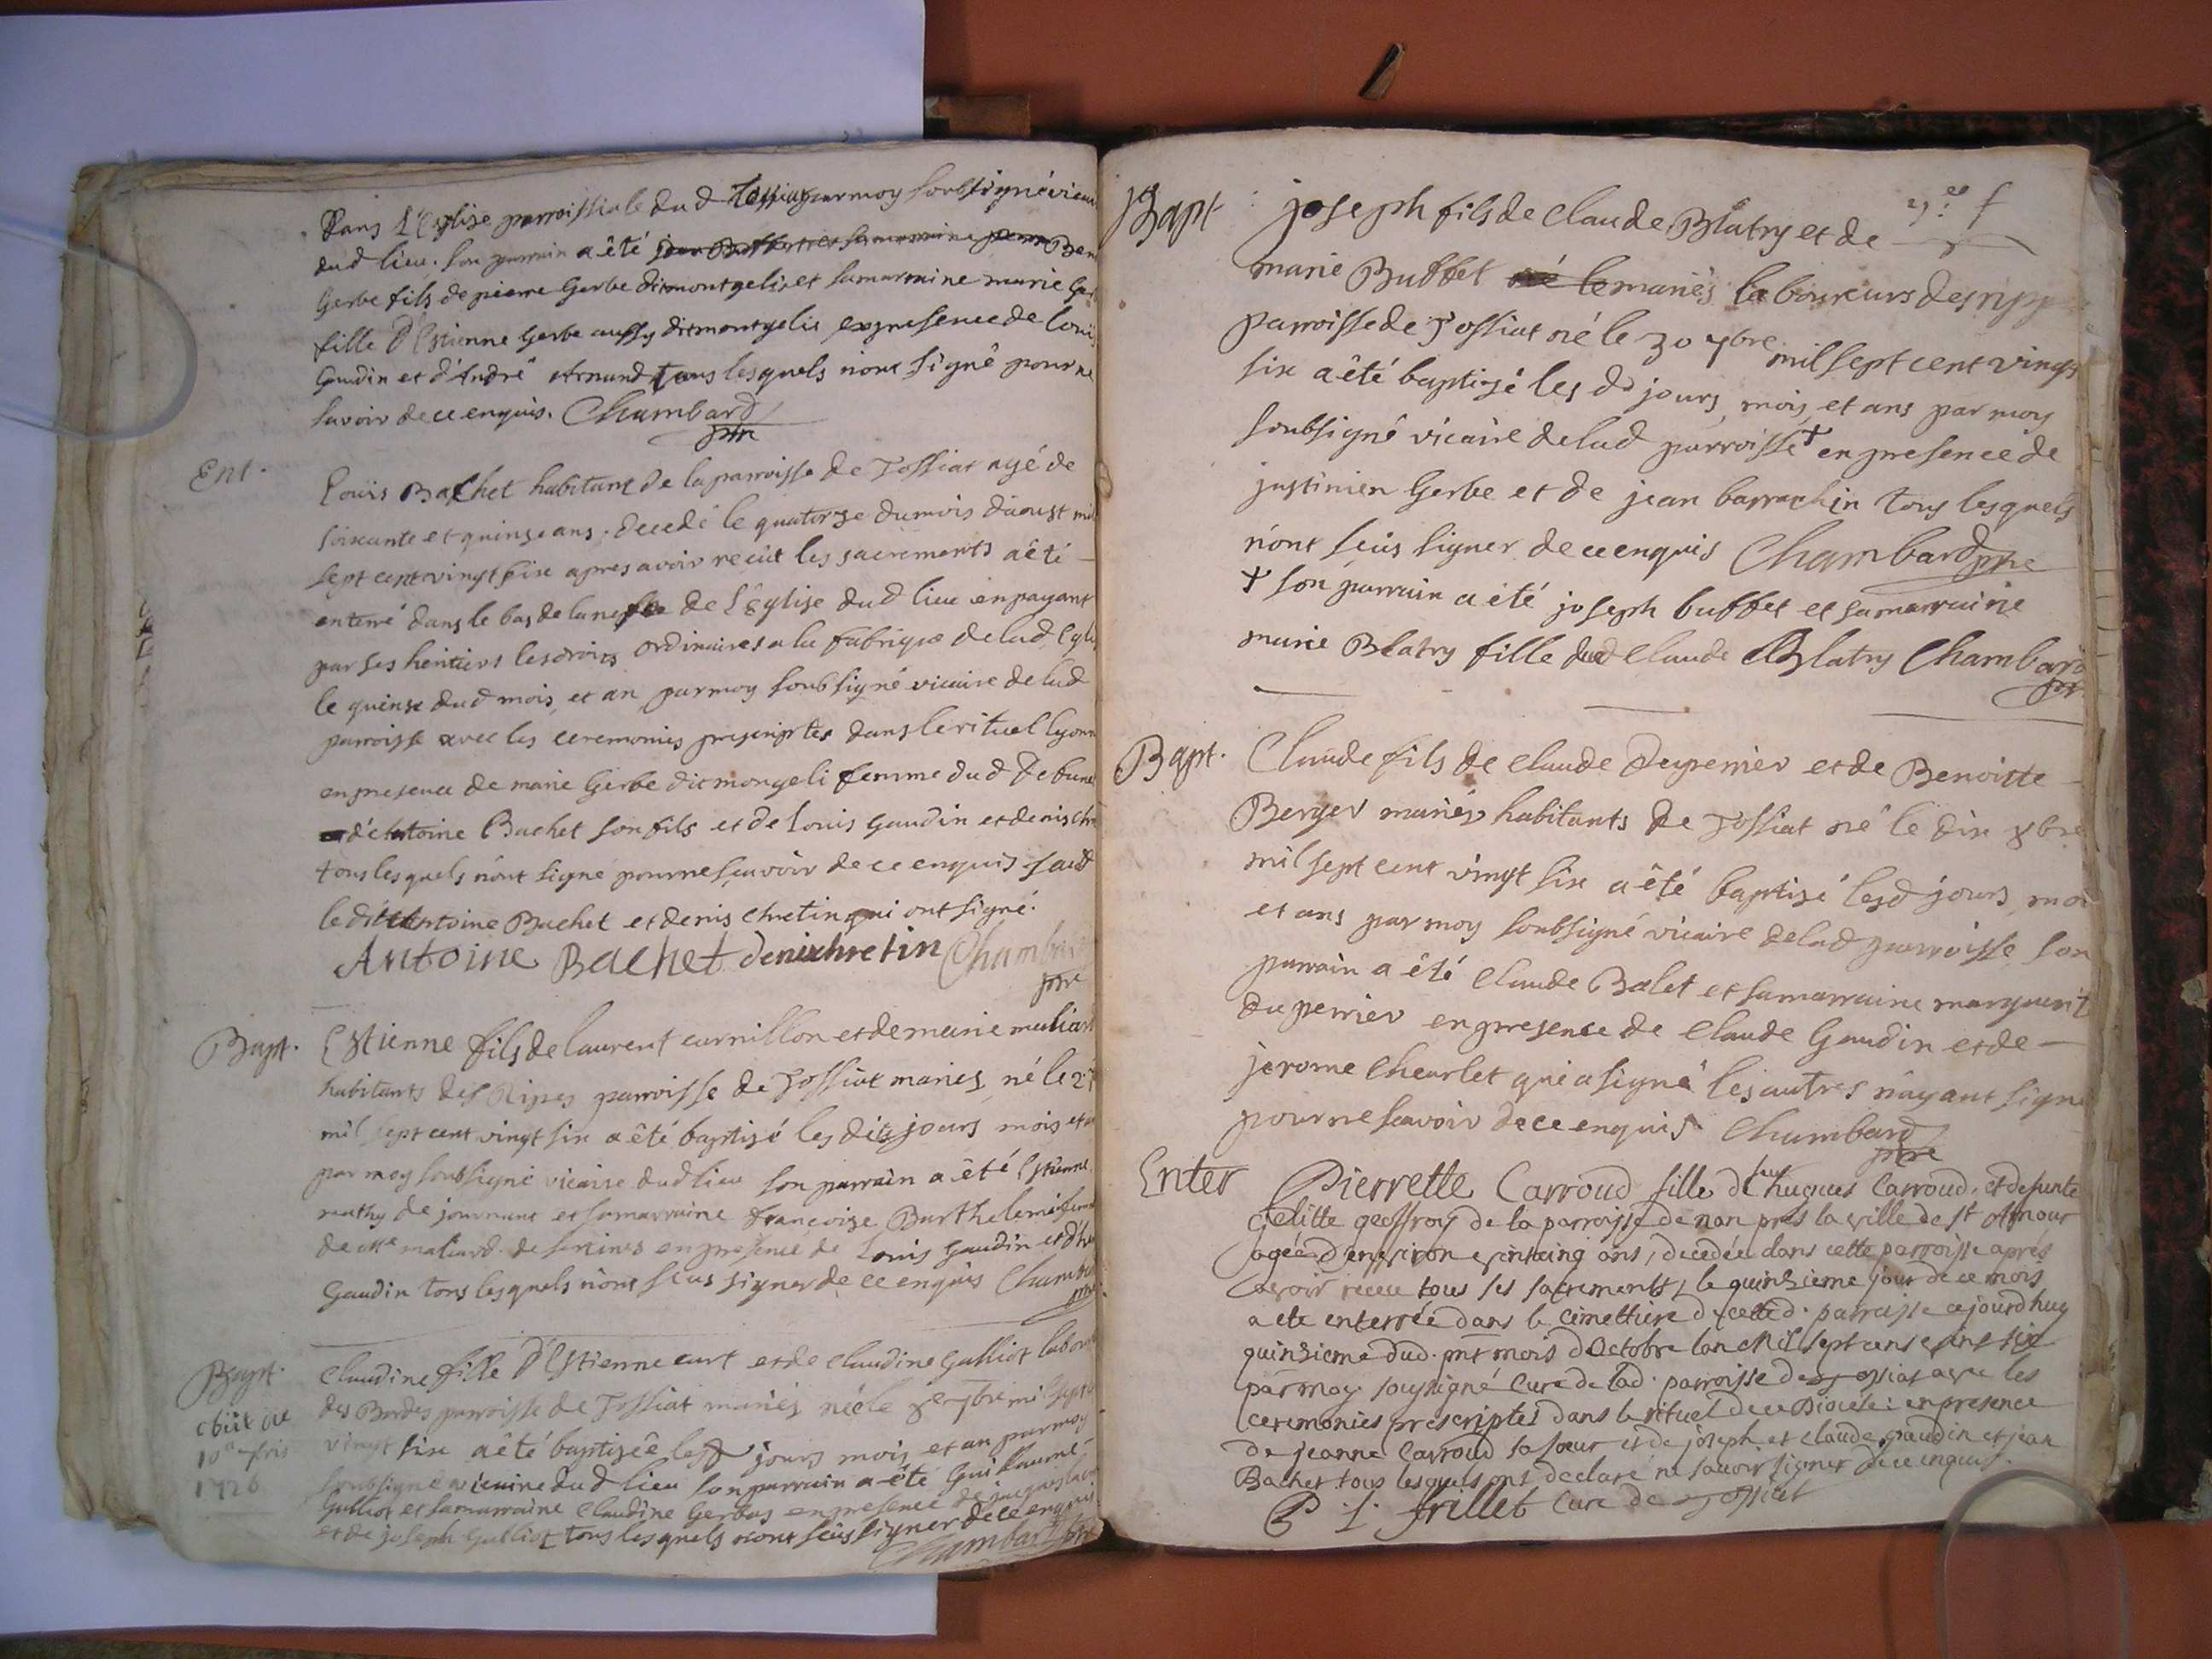 Dans L'Eglise parroissiale dud Tossiat par moy soubsigné vicai
dud lieu. son parrain a êté Ben
Gerbe fils de pierre Gerbe dit montgelis et sa marraine marie Ger
fille d'Estienne Gerbe aussy dit montgelis en presence de loüis
Gaudin et d'André Arnaud tous lesquels n'ont signé pour ne
savoir de ce enquis. Chambard
ptre
Ent.
Loüis Bachet habitant de la parroisse de Tossiat agé de
soixante et quinse ans. decedé le quatorze du mois d'aoust mil
sept cent vingt six apres avoir reçüt les sacrements a êté
enterré dans le bas de la nef de L'Eglise dud lieu en payant
par ses heritiers les droits ordinaires a la fabrique de lad Egli
le quinse dud mois et an par moy soubsigné vicaire de lad
parroisse avec les ceremonies prescriptes dans le rituel lyonn
en presence de marie Gerbe dit mongeli femme dud
d'Antoine Bachet son fils et de loüis Gaudin et denis chre
tous lesquels n'ont signé pour ne sçavoir de ce enquis sauf
le dit Antoine Bachet et denis chretin qui ont signé.
Antoine Bachet denis chretin Chambard
ptre
Bapt.
Estienne fils de laurent curnillon et de marie maliard
habitants des Ripes parroisse de Tossiat mariés né le 27
mil sept cent vingt six a êté baptisé les dits jours mois et an
par moy soubsigné vicaire dud lieu son parrain a êté Estienne
de journant et sa marraine françoise Barthelemi femme
de maliard de en presence de Loüis Gaudin et
Gaudin tous lesquels n'ont sçus signer de ce enquis Chambard
ptre
Bapt.
Claudine fille d'Estienne curt et de claudine Galliot labour
des Bordes parroisse de Tossiat mariés née le 7bre mil sept
vingt six a êté baptisée lesd jours mois et an par moy
obiit die
10a
1726
soubsigné vicaire dud lieu son parrain a êté Guillaume
Galliot et sa marraine Claudine Gerbas en presence de jacques
et de joseph Galliot tous lesquels n'ont sçus signer de ce enquis
Chambard ptre
Bapt
joseph fils de claude Blatry et de
marie Buffet mariés laboureurs des ripp
parroisse de Tossiat né le 30 7bre mil sept cent vingt
six a êté baptisé les d jours mois et ans par moy
soubsigné vicaire de lad parroisse + en presence de
justinien Gerbe et de jean barrachin tous lesquels
n'ont sçüs signer de ce enquis Chambard ptre
+ son parrain a été joseph buffet et sa marraine
marie Blatry fille dud claude Blatry Chambard
ptr
Bapt.
Claude fils de claude Duperrier et de Benoitte
Berger mariés habitants de Tossiat né le dix 8bre
mil sept cent vingt six a êté baptisé lesd jours moi
et ans par moy soubsigné vicaire de lad parroisse son
parrain a êté claude Balet et sa marraine marguerit
du perrier en presence de claude Gaudin et de
jerome chearlet qui a signé les autres n'ayant signé
pour ne savoir de ce enquis Chambard
ptre
Enter
Pierrette Carroud fille de hugues Carroud, et defunte
geoffroy de la parroisse de nan prés la ville de st Amour
agée d'environ vint cinq ans, decedée dans cette parroisse aprés
avoir receu tous ses sacrements, le quinsieme jour de ce mois
a ete enterrée dans le cimettiere de cetted. parroisse ce jourdhuy
quinsieme dud. pnt mois d Octobre lan mil sept cens vint six
par moy soussigné Curé de lad. parroisse de Tossiat avec les
ceremonies prescriptes dans le rituel de ce Diocése: en presence
de jeanne Carroud sa soeur et de joseph et claude gaudin et jean
Bachet tous lesquels ont declaré ne savoir signer de ce enquis.
frillet Curé de Tossiat